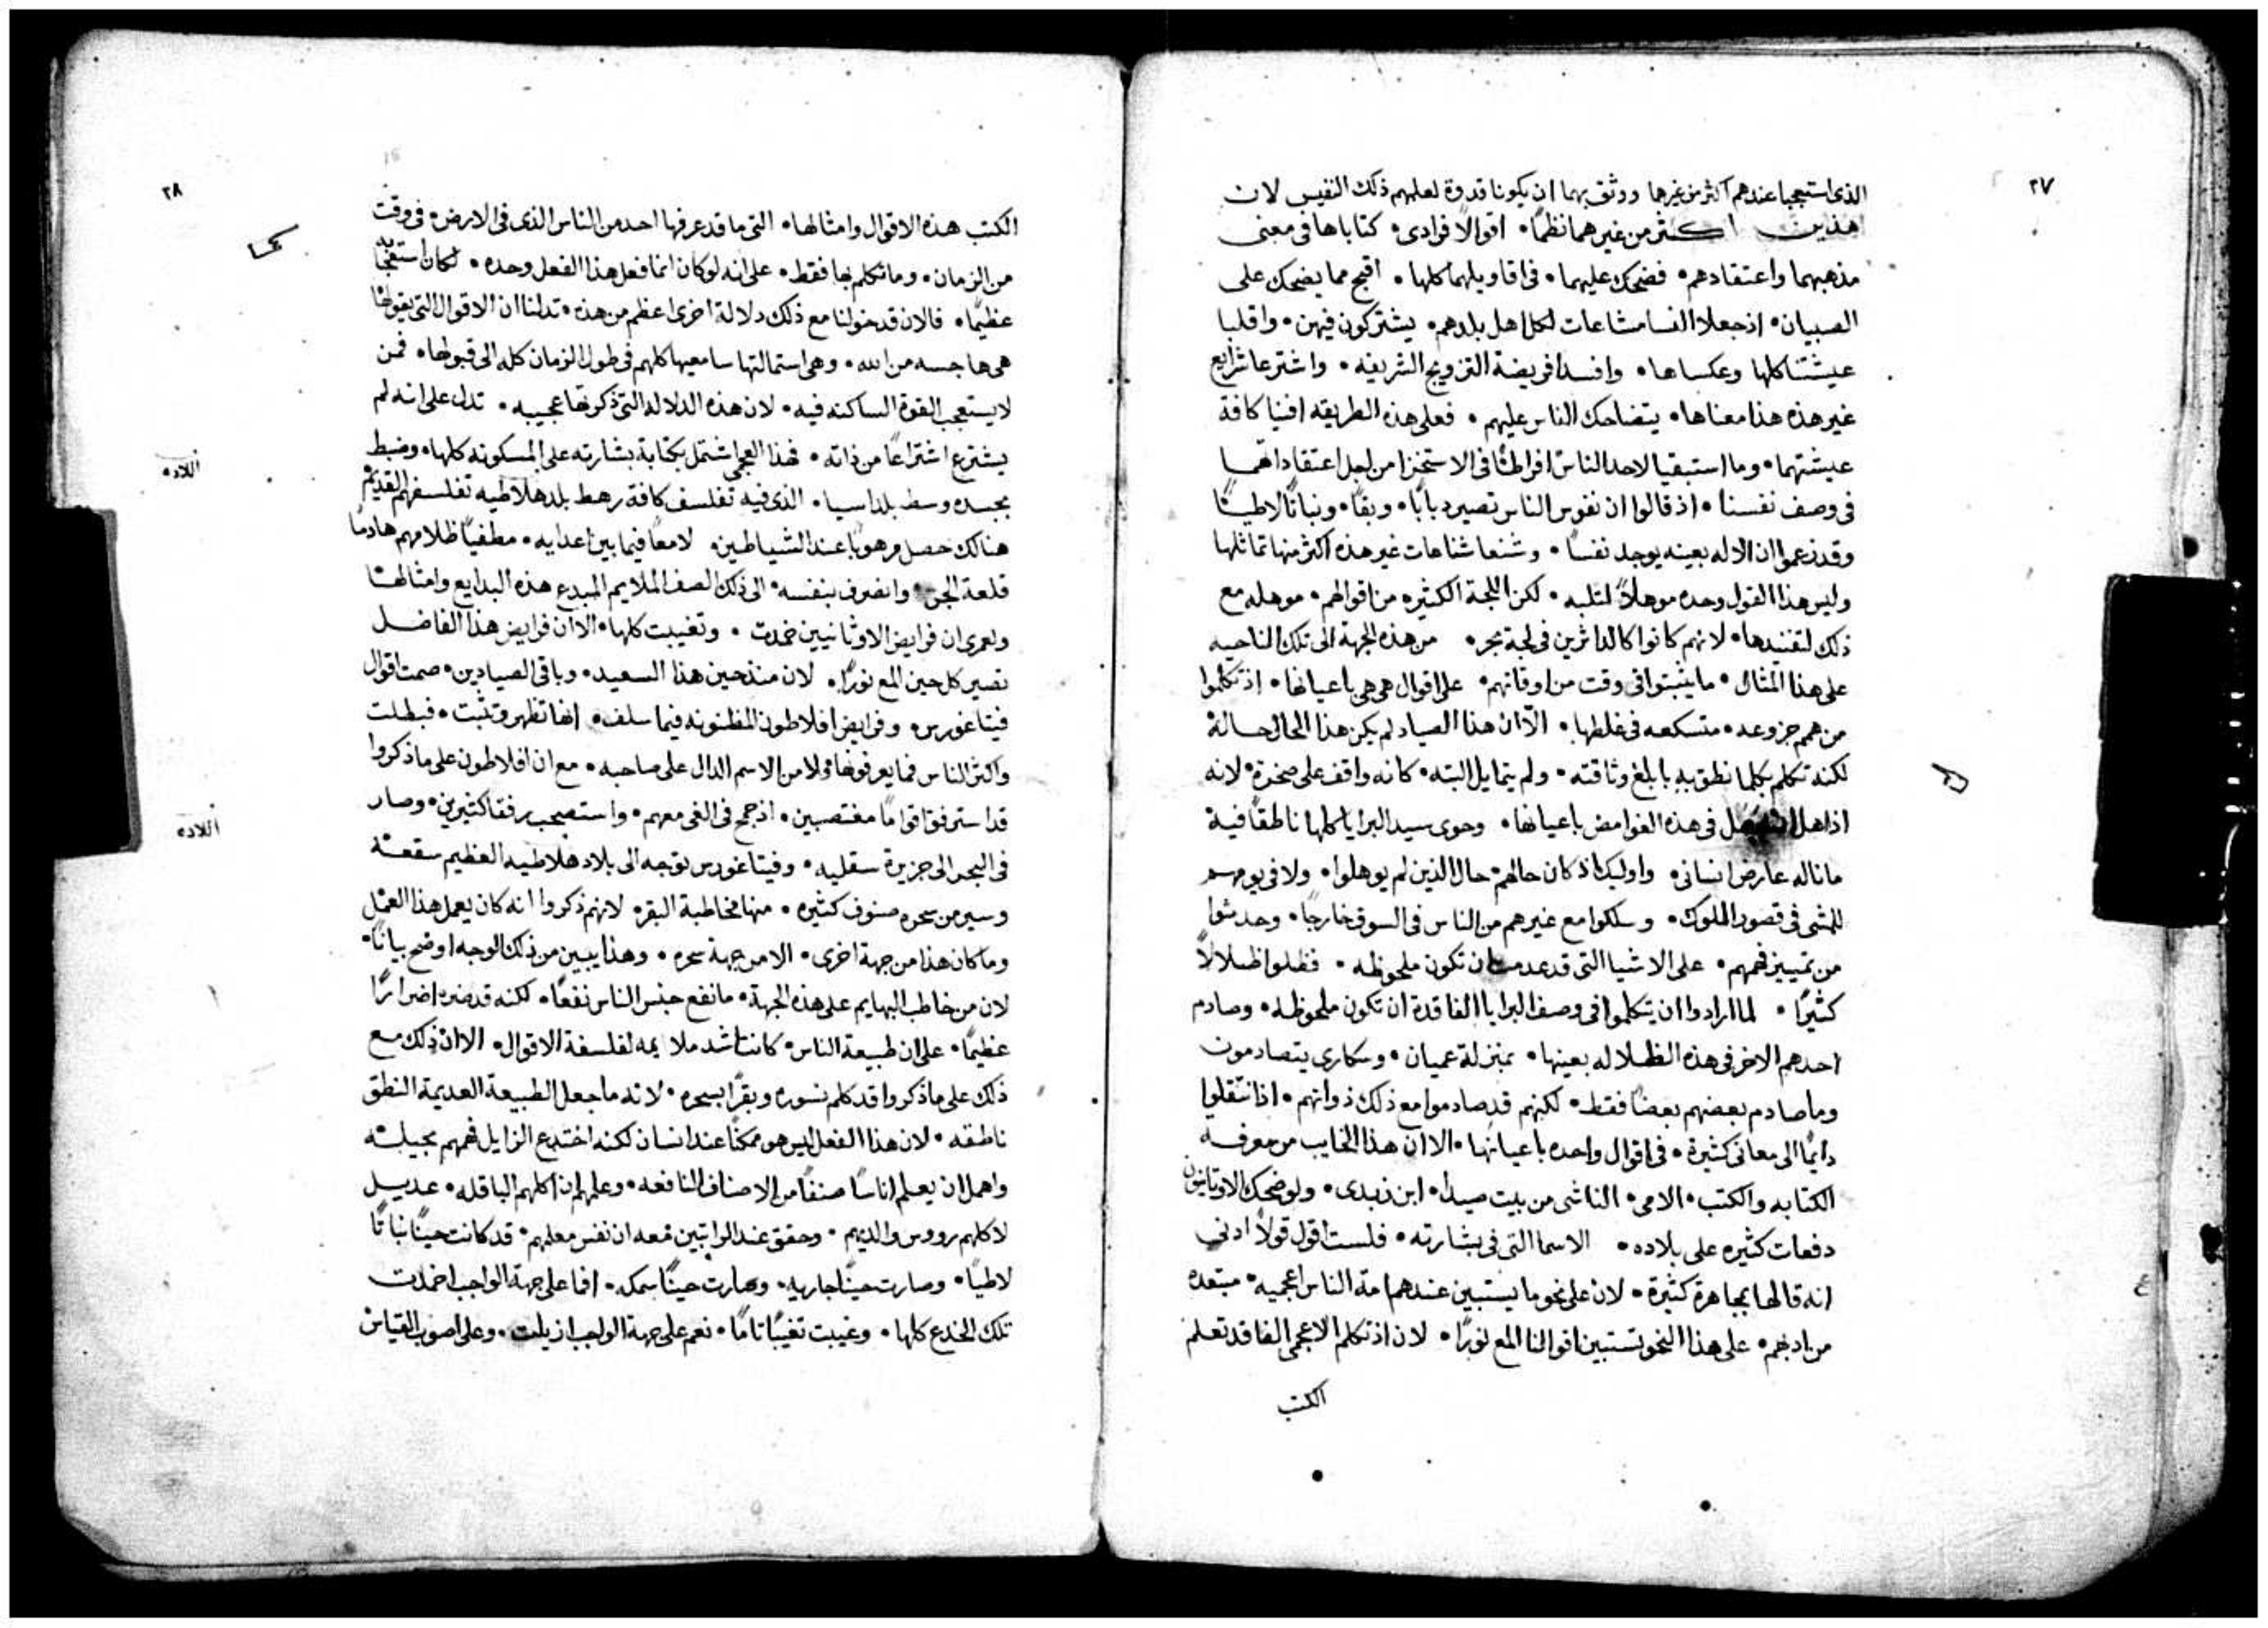 ٢٧
الذى استعجبا عندهم اكثر من غيرها ووثق بهما ان يكونا قدوة لعلهم ذلك النفيس لان
هذين اكثر من غيرهما نظما• اقوالا فرادى• كتاباها فى معنى
مذهبهما واعتقادهم• فضحك عليهما• فى اقاويلهما كلها• اقبح مما يضحك على
الصبيان• اذ جعلا النسا مشاعات لكل اهل بلدهم• يشتركون فيهن• واقلبا
عيشتنا كلها وعكساها• وافسدا فريضة التزويج الشريفه• واشترعا شرايع
غير هذه هذا معناها• يتضاحك الناس عليهم• فعلى هذه الطريقه افنيا كافة
عيشتهما• وما استبقيا لاحد الناس افراطا فى الاستخزا من اجل اعتقاداتهما
فى وصف نفسنا• اذ قالوا ان نفوس الناس تصير دبابا• وبقا• ونباتا لاطيا
وقد زعموا ان الاله بعينه يوجد نفسا• وشنعا شناعات غير هذه اكثر منها تماثلها
وليس هذا القول وحده موهلا لثلبه• لكن اللجة الكثيره من اقوالهم• موهله مع
ذلك لتفنيدها• لانهم كانوا كالداثرين فى لجة بحر• من هذه الجهة الى تلك الناحيه
على هذا المثال• ما يثبتوا فى وقت من اوقاتهم• على اقوال هى هى باعيانها• اذ تكلموا
من همم جزوعه• متسكعه فى غلطها• الا ان هذا الصياد لم يكن هذا الحال حالة
لكنه تكلم بكلما نطق به بابلغ وثاقته• ولم يتمايل البته• كانه واقف على صخرة• لانه
اذ اهل فى هذه الغوامض باعيانها• وحوى سيد البرايا كلها ناطقا فية
ما ناله عارض انسانى• واوليك اذ كان حالهم• حال الذين لم يوهلوا• ولا فى يومهم
للمشى فى قصور الملوك• وسلكوا مع غيرهم من الناس فى السوق خارجا• وحدثوا
من تمييز فهمهم• على الاشيا التى قد عدمت ان تكون ملحوظه• فظلوا ظلالا
كثيرا• لما ارادوا ان يتكلموا فى وصف البرايا الفاقدة ان تكون ملحوظه• وصادم
احدهم الاخر فى هذه الظلاله بعينها• بمنزلة عميان• وسكارى يتصادمون
وما صادم بعضهم بعضا فقط• لكنهم قد صادموا مع ذلك ذواتهم• اذ انتقلوا
دايما الى معانى كثيرة• فى اقوال واحده باعيانها• الا ان هذا الخايب من معرفة
الكتابه والكتب• الامى• الناشى من بيت صيدا• ابن زبدى• ولو ضحك الاوثانيون
دفعات كثيره على بلاده• الاسما التى فى بشارته• فلست اقول قولا ادنى
انه قالها بمجاهرة كثيرة• لان على نحو ما يستبين عندهم امة الناس اعجميه• مبتعده
من ادبهم• على هذا النحو تستبين اقوالنا المع نورا• لان اذ تكلم الاعجمى الفاقد تعلم
الكتب
٢٨
الكتب هذه الاقوال وامثالها• التى ما قد عرفها احد من الناس الذى فى الارض• فى وقت
من الزمان• وما تكلم بها فقط• على انه لو كان انما فعل هذا الفعل وحده• لكان استعجابه
عظيما• فالان قد خولنا مع ذلك دلالة اخرى اعظم من هذه• تدلنا ان الاقوال التى يقولها
هى هاجسه من الله• وهى استمالتها سامعيها كلهم فى طول الزمان كله الى قبولها• فمن
لا يستعجب القوة الساكنه فيه• لان هذه الدلاله التى ذكرتها عجيبه• تدل على انه لم
يشترع اشتراعا من ذاته• فهذا العجمى اشتمل بكتابة بشارته على المسكونه كلها• وضبط
بجسده وسط بلد اسيا• الذى فيه تفلسف كافة رهط بلد هلاطيه تفلسفهم القديم
هنالك حصل مرهوبا عند الشياطين• لامعا فيما بين اعدايه• مطفيا ظلامهم هادما
قلعة الجن• وانصرف بنفسه• الى ذلك الصف الملايم المبدع هذه البدايع وامثالها
ولعمرى ان فرايض الاوثانيين خمدت• وتغيبت كلها• الا ان فرايض هذا الفاضل
تصير كل حين المع نورا• لان منذ حين هذا السعيد• وباقى الصيادين• صمت اقوال
فيثاغورس• وفرايض افلاطون المظنونه فيما سلف• انها تظهر وتثبت• فبطلت
واكثر الناس فما يعرفونها ولا من الاسم الدال على صاحبه• مع ان افلاطون على ما ذكروا
قد استرفق اقواما مغتصبين• اذ جمح فى الغى معهم• واستصحب رفقا كثيرين• وصار
فى البحر الى جزيرة سقليه• وفيثاغورس توجه الى بلاد هلاطيه العظيم سقعه
وسير من سحره صنوف كثيره• منها مخاطبة البقر• لانهم ذكروا انه كان يعمل هذا العمل
وما كان هذا من جهة اخرى• الا من جهة سحره• وهذا يبين من ذلك الوجه اوضح بيانا•
لان من خاطب البهايم على هذه الجهة• ما نفع جنس الناس نفعا• لكنه قد ضره اضرارا
عظيما• على ان طبيعة الناس• كانت اشد ملايمه لفلسفة الاقوال• الا ان ذلك مع
ذلك على ما ذكروا قد كلم نسوره وبقرا بسحره• لانه ما جعل الطبيعة العديمة النطق
ناطقه• لان هذا الفعل ليس هو ممكنا عند انسان لكنه اختدع الزايل فهمهم بحيلته
واهمل ان يعلم اناسا صنفا من الاصناف النافعه• وعلمهم ان اكلهم الباقله• عديل
لاكلهم رووس والديهم• وحقق عند الراتبين معه ان نفس معلمهم• قد كانت حينا نباتا
لاطيا• وصارت حينا جاريه• وصارت حينا سمكه• افما على جهة الواجب اخمدت
تلك الخدع كلها• وغيبت تغيبا تاما• نعم على جهة الواجب ازيلت• وعلى اصوب القياس
اللاده
اللاده